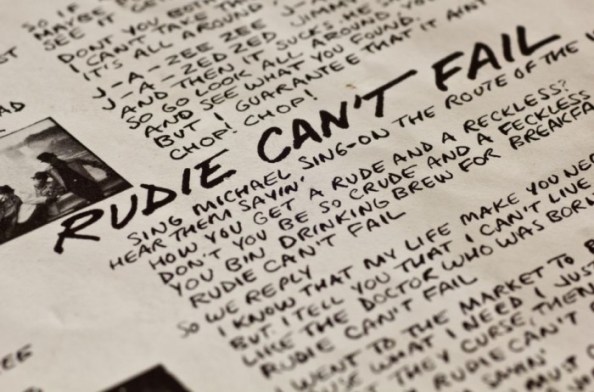 SO IF
MAYBE
SEE IT GE
DON'T YOU BOTH
I CAN'T TAKE TH
IT'S ALL AROUND
J-A-ZEE ZEE J-A
J-A-ZED ZED JIMM
AND THEN IT SUCKS. HE S
SO GO LOOK ALL AROUND, YO
AND SEE WHAT YOU FOUND.
BUT I GUARANTEE THAT IT AINT
CHOP! CHOP!
AD
RUDIE CAN'T FAIL
SING MICHAEL SING-ON THE ROUTE OF THE 1
HEAR THEM SAYIN'
HOW YOU GET A RUDE AND A RECKLESS?
DON'T YOU BE SO CRUDE AND A FECKLESS
YOU BIN DRINKING BREW FOR BREAKFA
RUDIE CAN'T FAIL
SO WE REPLY
I KNOW THAT MY LIFE MAKE YOU NE
BUT I TELL YOU THAT I CAN'T LIVE
LIKE THE DOCTOR WHO WAS BORN
RUDIE CAN'T FAIL
I WENT TO THE MARKET TO
WHAT I NEED I JUST
THEY CURSE, THEN
RUDIE CAN'T
SAYIN'